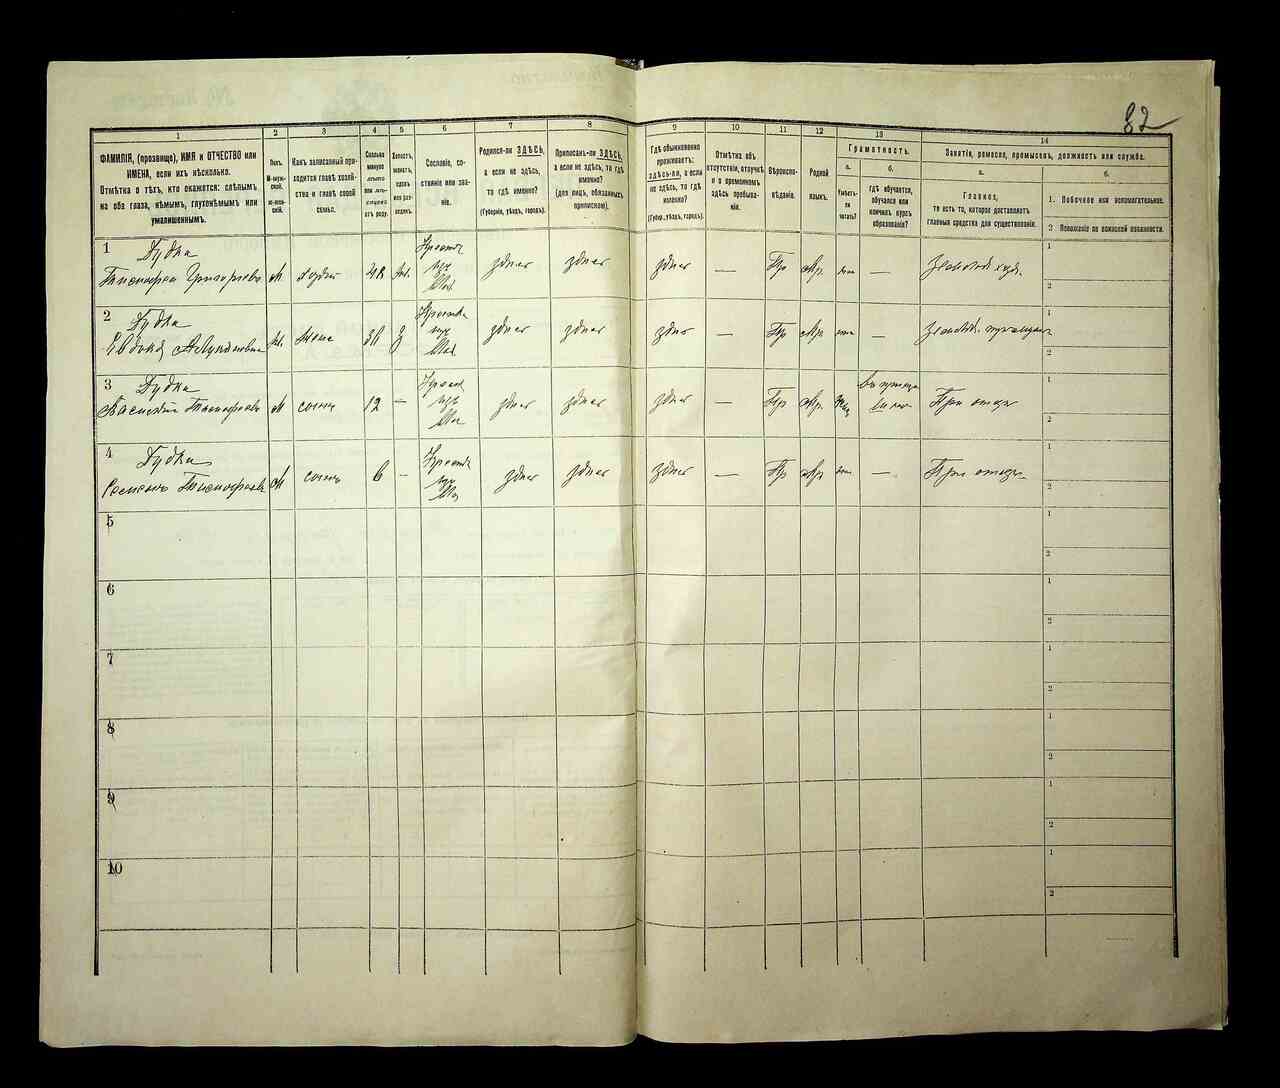 82
1
2
3
4
5
6
7
8
9
10
11
12
13
14
ФАМИЛІЯ, (прозвище), ИМЯ и ОТЧЕСТВО или
ИМЕНА, если ихъ нѣсколько.
Отмѣтка о тѣхъ, кто окажется: слѣпымъ
на оба глаза, нѣмымъ, глухонѣмымъ или
умалишеннымъ.
Полъ.
М-муж-
ской.
Ж-жен-
скій.
Какъ записанный при-
ходится главѣ хозяй-
ства и главѣ своей
семьи.
Сколько
минуло
лѣтъ
или мѣся-
цевъ
отъ роду.
Холостъ,
женатъ,
вдовъ
или раз-
веденъ.
Сословіе, со-
стояніе или зва-
ніе.
Родился-ли ЗДѢСЬ,
а если не здѣсь,
то гдѣ именно?
(Губернія, уѣздъ, городъ).
Приписанъ-ли ЗДѢСЬ,
а если не здѣсь, то гдѣ
именно?
(для лицъ, обязанныхъ
припискою).
Гдѣ обыкновенно
проживаетъ:
ЗДѢСЬ-ЛИ, а если
не здѣсь, то гдѣ
именно?
(Губер., уѣздъ, городъ).
Отмѣтка объ
отсутствіи, отлучкѣ
и о временномъ
здѣсь пребыва-
ніи.
Вѣроиспо-
вѣданіе.
Родной
языкъ.
Грамотность.
а.
Умѣетъ-
ли
читать?
б.
гдѣ обучается,
обучался или
кончилъ курсъ
образованія?
Занятіе, ремесло, промыселъ, должность или служба.
а.
Главное,
то есть то, которое доставляетъ
главныя средства для существованія.
б.
1. Побочное или вспомогательное.
2 Положеніе по воинской повинности.
1
Дудка
Тимофей Григорьевъ
М
48
здѣсь
здѣсь
здѣсь
—
Пр
—
1
2
2
Дудка
жена
здѣсь
здѣсь
здѣсь
—
Пр
—
1
2
3
Дудка
Тимофеевъ
М
сынъ
12
—
здѣсь
здѣсь
здѣсь
—
Пр
При отцѣ
1
2
4
Дудка
Семенъ Тимофеевъ
М
сынъ
6
—
здѣсь
здѣсь
здѣсь
—
Пр
—
При отцѣ
1
2
5
1
2
6
1
2
7
1
2
8
1
2
9
1
2
10
1
2